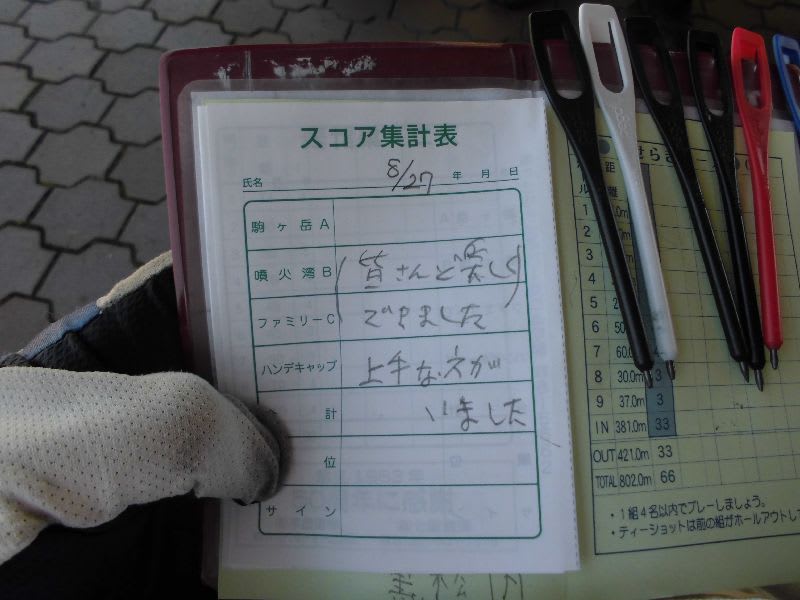 スコア集計表
8/27
氏名 年 月 日
駒ヶ岳A
噴火湾B (皆さんと楽しく)
ファミリーC できました
ハンデキャップ 上手な
計 いました
位
サイン
距
1
2
3
4
5
6
7 60.
8 30.0m 3
9 37.0m 3
IN 381.0m 33
OUT 421.0m 33
TOTAL 802.0m 66
・1組4名以内でプレーしましょう。
・ティーショットは前の組がホールアウトし